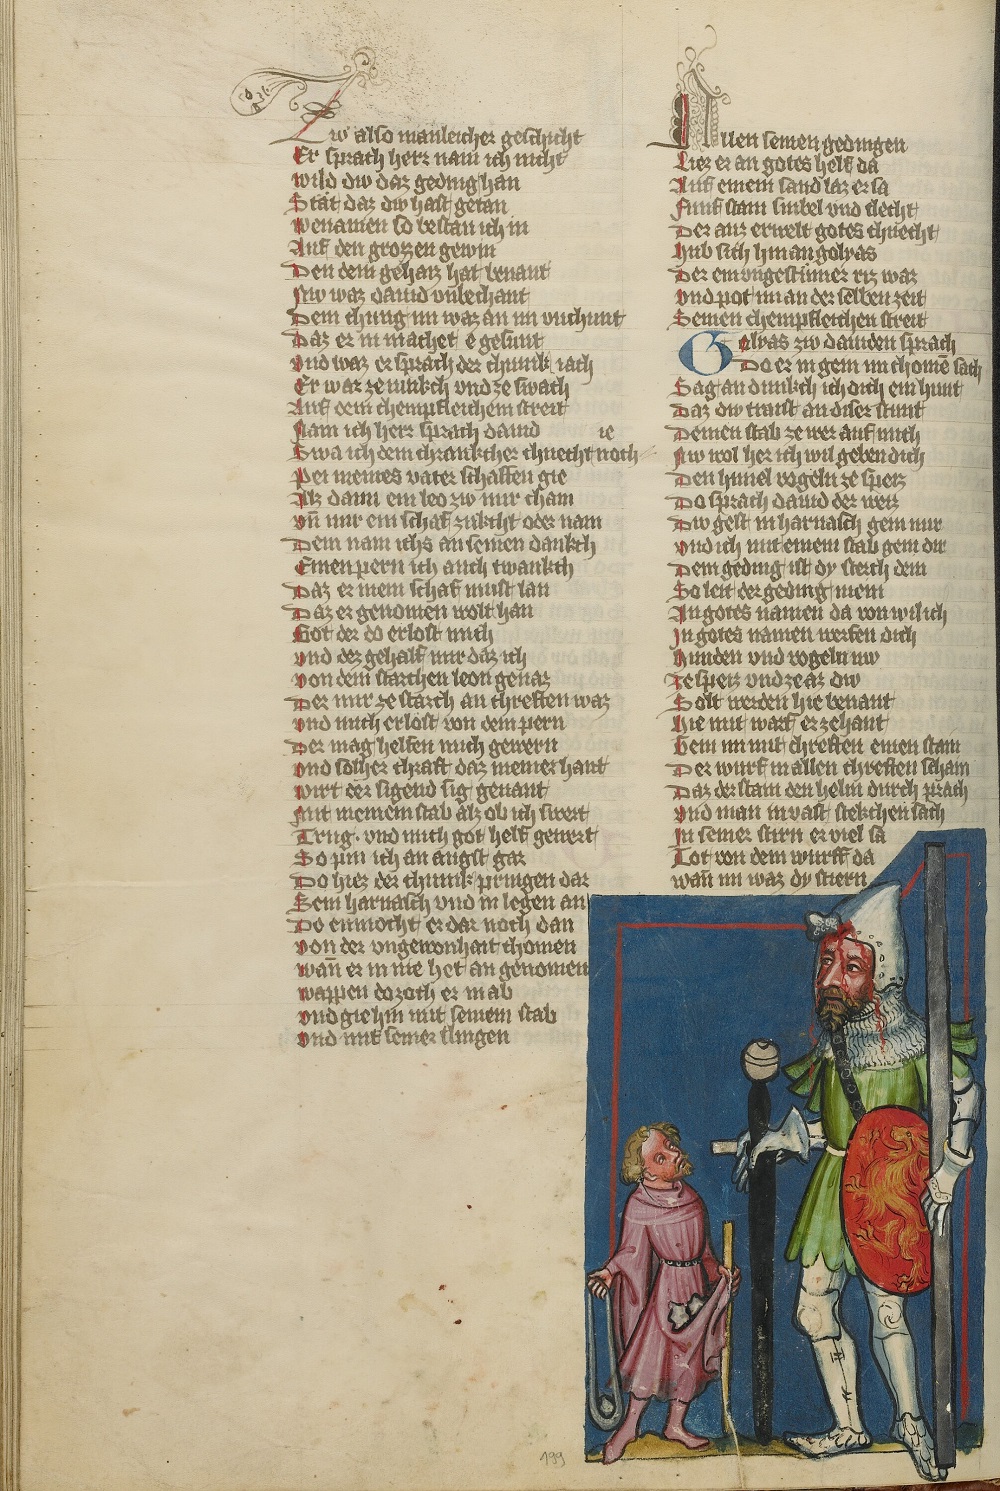 Zw also manleicher geschicht
Er sprach herr nam ich nicht
wild dw daz geding han
Stat daz dw hast getan
wenamen so bestan ich in
Auf den grozzen gewin
Den dem gehaiz hat benant
Nw waz dauid vnbechant
Dem chung im waz an im vnchunt
Daz er in machet e gesunt
vnd waz er sprach der chunik iach
Er war ze iunkch vnd ze swach
Auf dem chempfleichem streit
Nain ich herr sprach dauid
ie
Swa ich dem chrankcher chnecht noch
Pei meines vater schaffen gie
Iz dann ein leo zw mir cham
vn̄ mir ein schaf zukcht oder nam
Dem nam ichs an seinen dankch
Einen pern ich auch twankch
Daz er mein schaf must lan
Daz er genomen wolt han
Got der do erlost mich
vnd der gehalf mir daz ich
von dem starchen leon genaz
Der mir ze starch an chreften waz
vnd mich erlost von dem pern
Der mag helfen mich gewern
vnd solher chraft daz meiner hant
wirt der sigend sig genant
Mit meinem stab alz ob ich swert
Trug · vnd mich got helf gewert
So pin ich an angst gar
Do hiez der chunik pringen dar
Sein harnasch vnd in legen an
Do enmocht er dar noch dan
von der vngewonhait chomen
wan̄ er in nie het an genomen
wappen do zoch er in ab
vnd gie hin mit seinem stab
vnd mit seiner slingen
Allen seinen gedingen
Liez er an gotes helf da
Auf einem sand laz er sa
funf stain sinbel vnd slecht
Der auz erwelt gotes chnecht
Hub sich hin an golyas
Der ein vngestumer riz waz
vnd pot im an der selben zeit
Seinen chempfleichen streit
Golyas zw dauiden sprach
Do er in gein im chomē sach
Sag an dunkch ich dich ein hunt
Daz dw traist an diser stunt
Deinen stab ze wer auf mich
Nw wol her ich wil geben dich
Den himel vogeln ze speiz
Do sprach dauid der weis
Dw gest in harnasch gein mir
vnd ich mit einem stab gein dir
Dein geding ist dy sterch dein
So leit der geding mein
An gotes namen da von wil ich
In gotes namen werfen dich
Hunden vnd vogeln nw
ze speiz vnd ze az dw
Solt werden hie benant
Hie mit warf er zehant
Gein im mit chreften einen stain
Der wurf in allen chreften schain
Daz der stain den helm durch prach
vnd man in vast stekchen sach
In seiner stirn er viel sa
Tot von dem wurff da
wan̄ im waz dy stiern
199